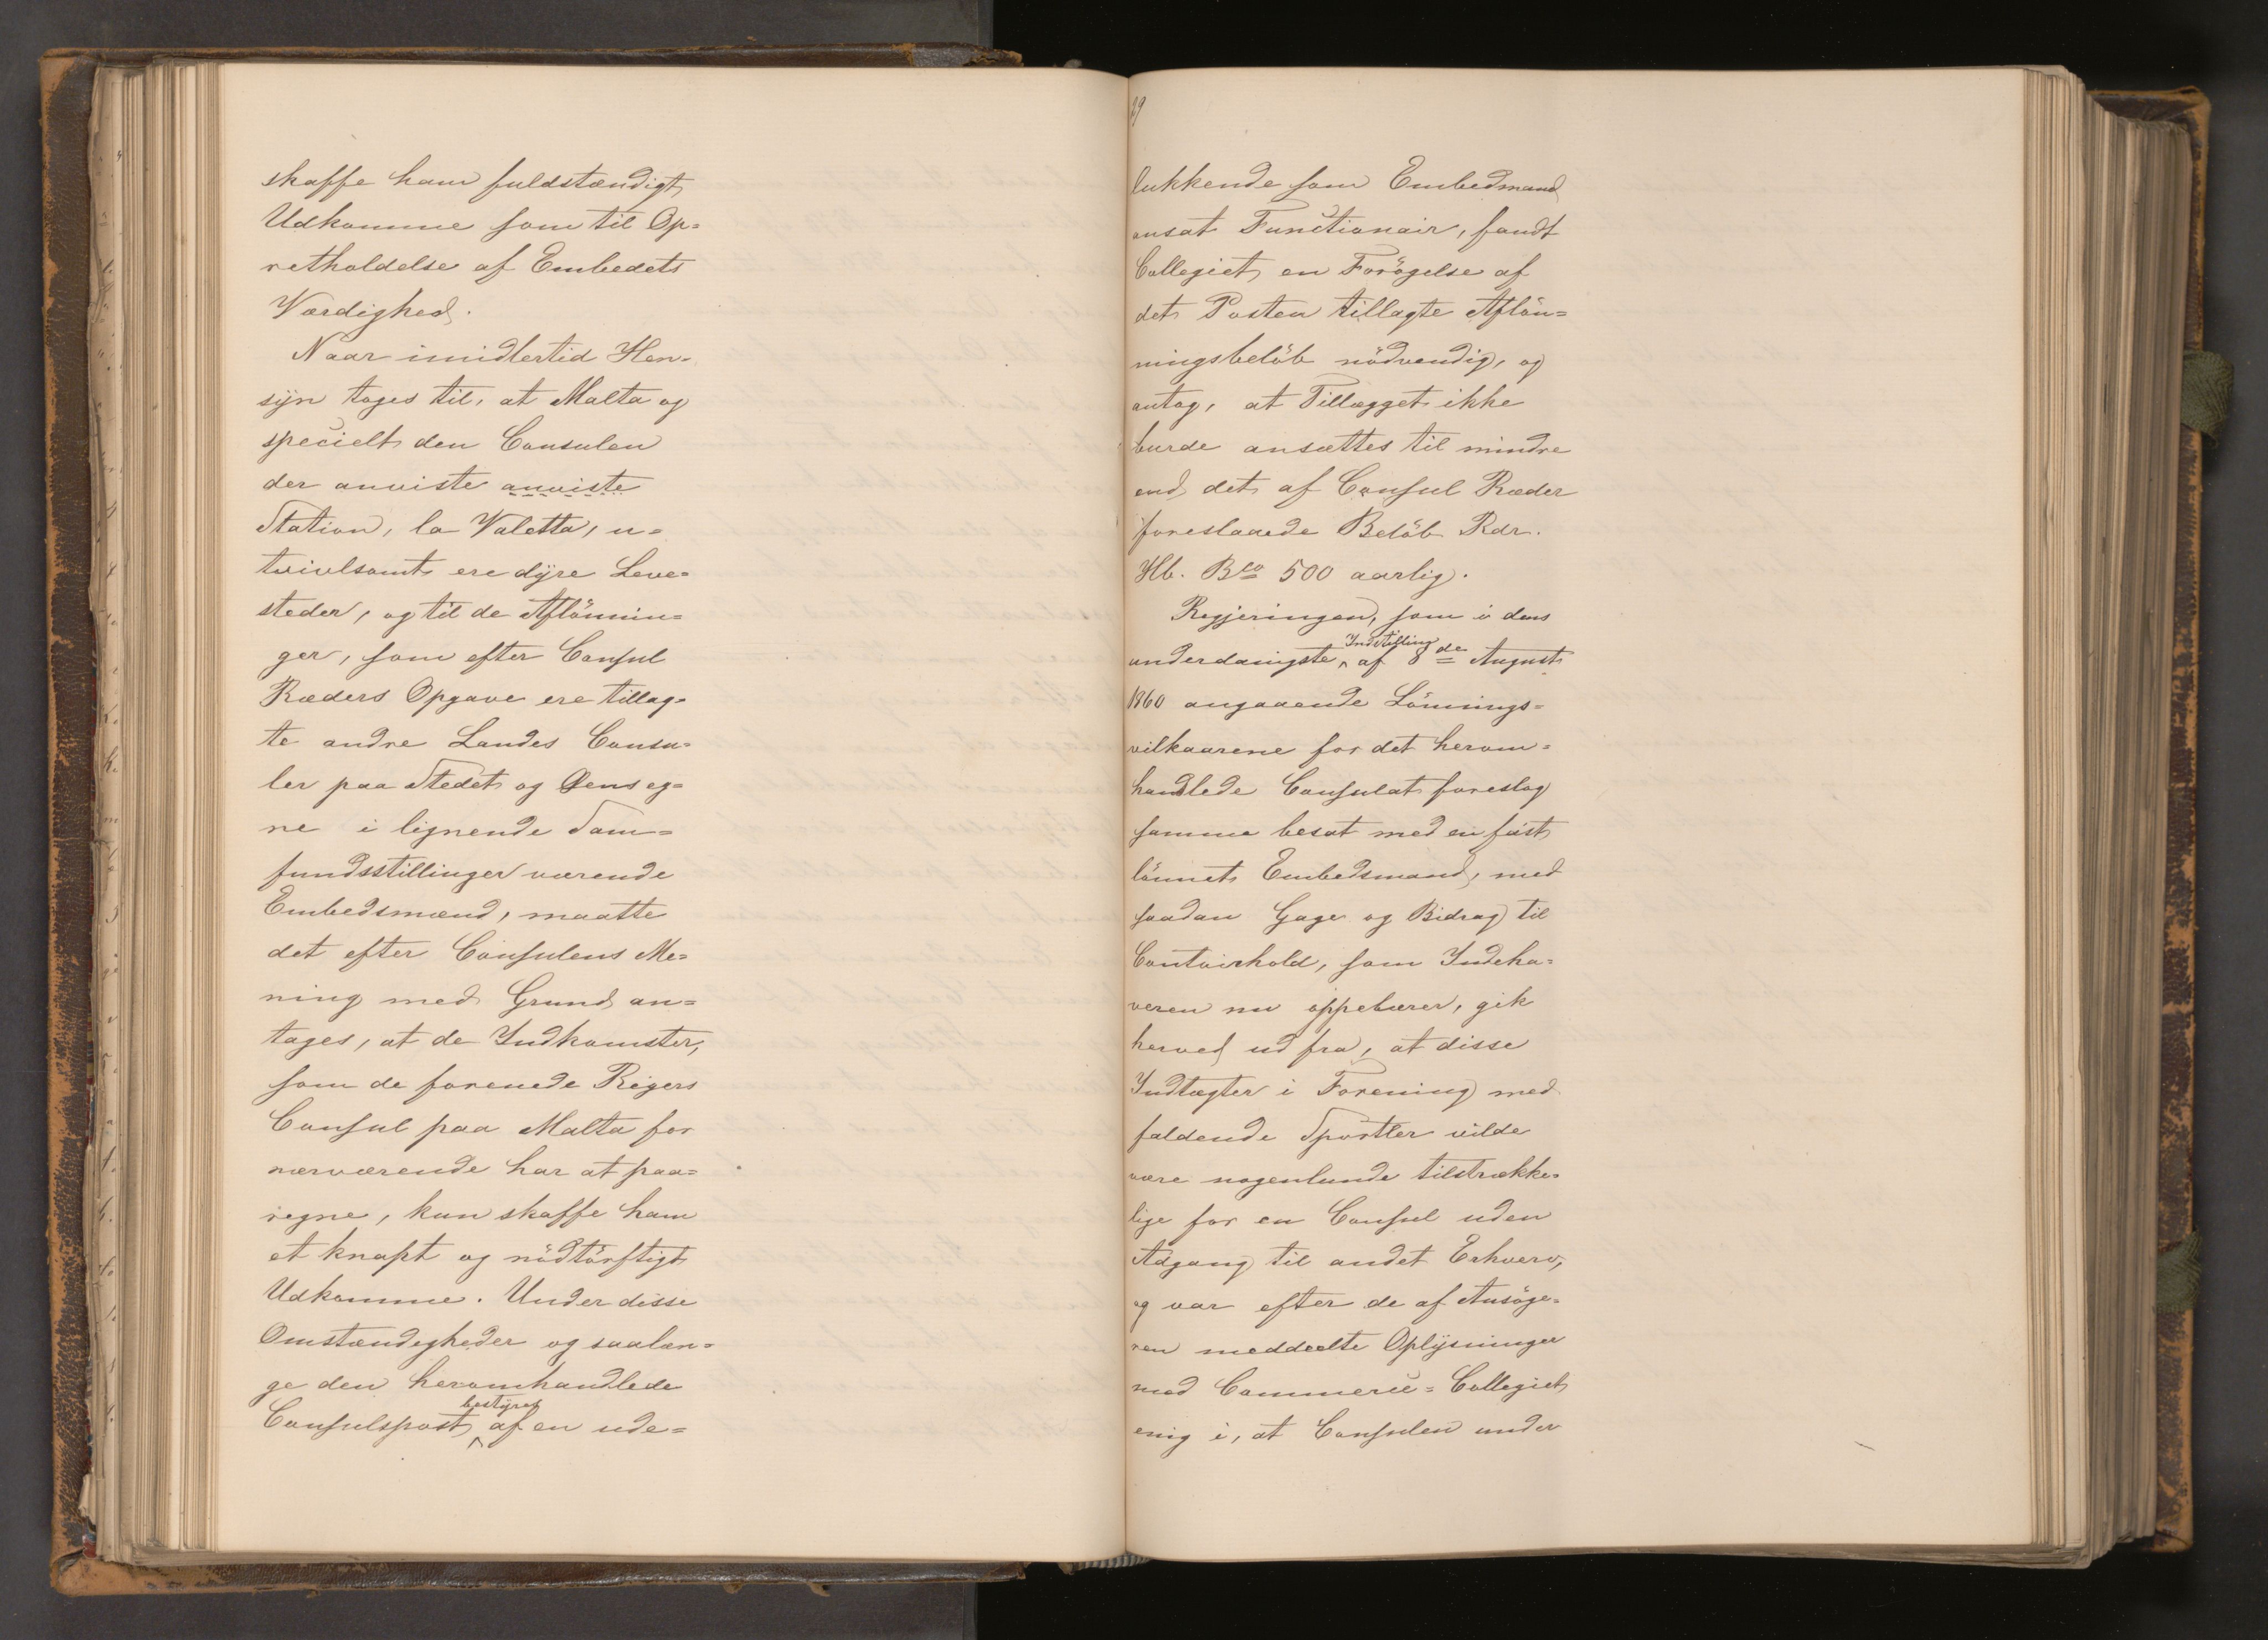 skaffe ham fuldstændigt
Udkomme som til Op=
retholdelse af Embedets
Værdighed.
Naar imidlertid Hen-
syn tages til, at Malta og
specielt den Consulen
der anviste anviste
Station, la Valetta, u=
tvivlsomt ere dyre Leve=
steder, og til de Aflönnin=
ger, som efter Consul
Ræders Opgave ere tillag=
te andre Landes Consu=
ler paa Stedet og Öens eg=
ne i lignende Sam=
fundsstillinger værende
Embedsmænd, maatte
det efter Consulens Me=
ning med Grund an=
tages, at de Indkomster,
som de forenede Rigers
Consul paa Malta for
nærværende har at paa=
regne, kun skaffe ham
et knapt og nödtörftigt
Udkomme. Under disse
Omstændegheder og saalæn=
ge den heromhandlede
Consulspost bestyres af en ude=
29
lukkende som Embedmand
ansat Functionair, fandt
Collegiet en Forögelse af
det Posten tillagte Aflön=
ningsbelöb nödvendig, og
antog, at Tillægget ikke
burde ansættes til mindre
end det af Consul Ræder
foreslaaede Belöb Rdr.
Hb. Bco 500 aarlig.
Regjeringen, som i dens
underdanigste Indstilling af 8de August
1860 angaaende Lönnings=
vilkaarene for det herom=
handlede Consulat foreslog
samme besat med en fast
lönnet Embedsmand, med
saadan Gage og Bidrag til
Contoirhold, som Indeha=
veren nu oppebærer, gik
herved ud fra, at disse
Indtægter i Forening med
faldende Sportler vilde
være nogenlunde tilstrække=
lige for en Consul uden
Adgang til andet Erhverv,
og var efter de af Ansöge=
ren meddeelte Oplysninger
med Commerce=Collegiet
enig i, at Consulen under